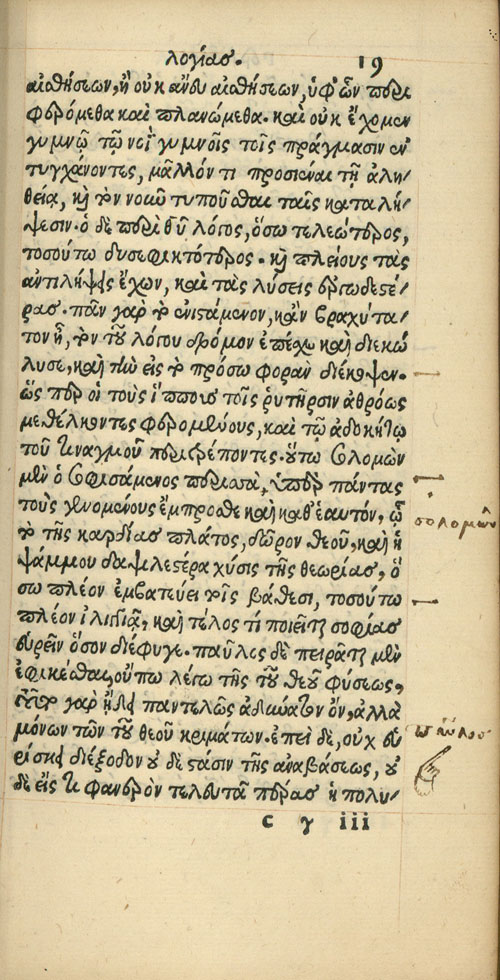 λογίας. 19
αἰσθήσεων, ἢ οὐκ ἄνευ αἰσθήσεων, ὑφ' ὧν περι
φερόμεθα καὶ πλανώμεθα. καὶ οὐκ ἔχομεν
γυμνῷ τῷ νοῒ γυμνοῖς τοῖς πράγμασιν ἐν
τυγχάνοντες, μᾶλλόν τι προσιέναι τῇ ἀλη-
θείᾳ, καὶ τὸν νοῦν τυποῦσθαι ταῖς καταλή-
ψεσιν. ὁ δὲ περὶ θεοῦ λόγος, ὅσω τελεώτερος,
τοσούτω δυσεφικτότερος. καὶ πλείους τὰς
ἀντιλήψεις ἔχων, καὶ τὰς λύσεις ἐργωδεστέ-
ρας. πᾶν γὰρ τὸ ἐνιστάμενον, κἂν βραχύτα-
τον ᾖ, τὸν τοῦ λόγου δρόμον ἐπέσχε καὶ διεκώ
λυσε, καὶ τὴν εἰς τὸ πρόσω φορὰν διέκοψεν.
ὥσπερ οἱ τοὺς ἵππους τοῖς ῥυτῆρσιν ἀθρόως
μεθέλκοντες φερομένους, καὶ τῷ ἀδοκήτῳ
τοῦ τιναγμοῦ περιτρέποντες. οὕτω Σολομὼν
μὲν ὁ σοφισάμενος περισσὰ, ὑπὲρ πάντας
τοὺς γενομένους ἔμπροσθε καὶ καθ' ἑαυτόν, ᾧ
τὸ τῆς καρδίας πλάτος, δῶρον θεοῦ, καὶ ἡ
ψάμμου δαψιλεστέρα χύσις τῆς θεωρίας, ὅ
σω πλέον ἐμβατεύει τοῖς βάθεσι, τοσούτω
πλέον ἰλιγγιᾷ, καὶ τέλος τί ποιεῖται σοφίας
εὑρεῖν ὅσον διέφυγε. παῦλος δὲ πειρᾶται μὲν
ἐφικέσθαι, οὔπω λέγω τῆς τοῦ θεοῦ φύσεως,
τοῦτο γὰρ ᾔδει παντελῶς ἀδύνατον ὄν, ἀλλὰ
μόνων τῶν τοῦ θεοῦ κριμάτων. ἐπεὶ δὲ, οὐχ εὑ
ρίσκει διέξοδον οὐδὲ στάσιν τῆς ἀναβάσεως, οὐ
δὲ εἴς τι φανερὸν τελευτᾷ πέρας ἡ πολυ-
c γ iii
σολομῶν
παῦλος